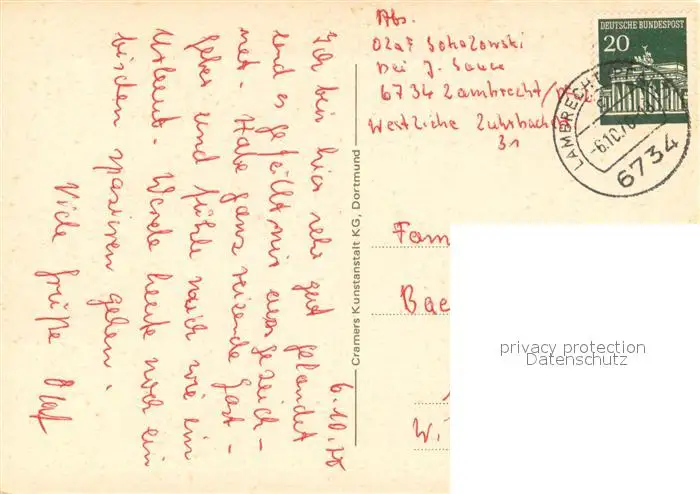 6.10.70
Ich bin hier sehr gut gelandet
und es gefällt mir ausgezeich-
net. Habe ganz reizende Gast-
geber und fühle mich wie im
Urlaub. Werde heute noch ein
bischen spazieren gehen.
Viele Grüße Olaf
Cramers Kunstanstalt KG, Dortmund
Abs.
Olaf Sokolowski
bei J.
6734 Lambrecht/
Westliche
31
DEUTSCHE BUNDESPOST
20
LAMBRECHT
-6.10.70
6734
Fam
Bae
privacy protection
Datenschutz